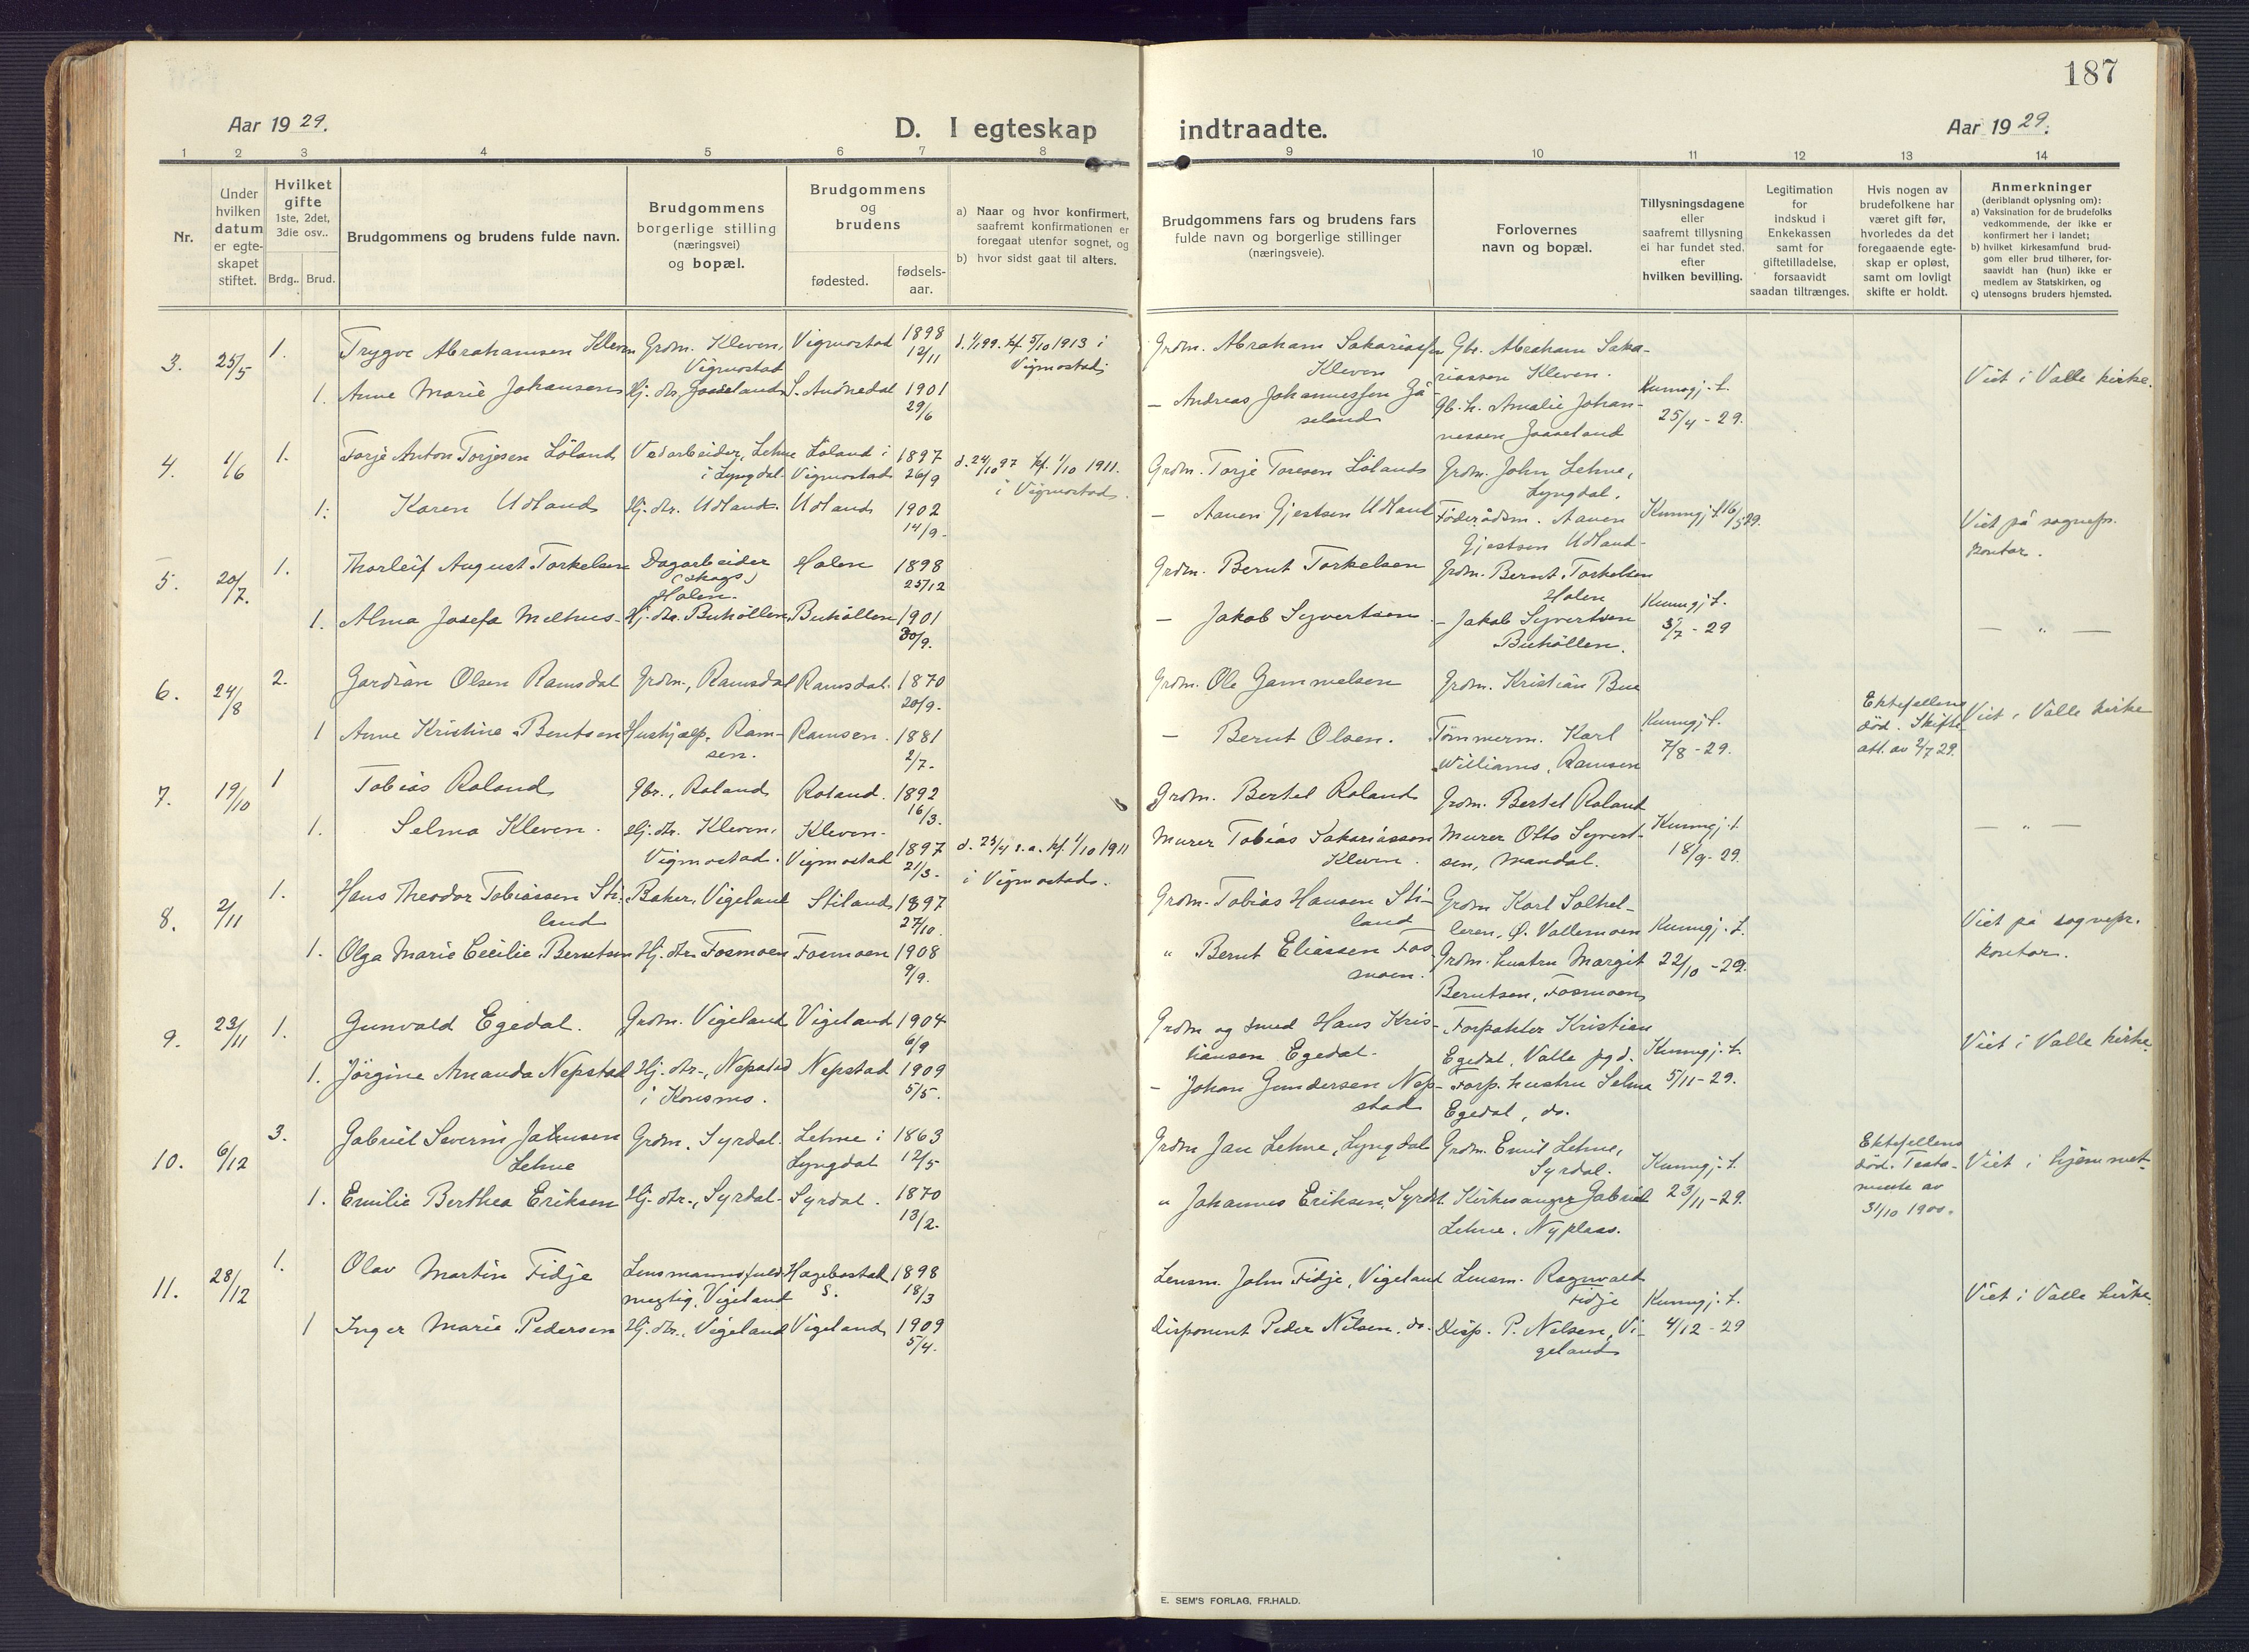 187
Aar 1929.
D. I egteskap indtraadte.
Aar 1929.
1 2 3 4 5 6 7 8 9 10 11 12 13 14
Nr.
Under
hvilken
datum
er egte-
skapet
stiftet.
Hvilket
gifte
1ste, 2det,
3die osv..
Brdg.. Brud.
Brudgommens og brudens fulde navn.
Brudgommens
borgerlige stilling
(næringsvei)
og bopæl.
Brudgommens
og
brudens
fødested.
fødsels-
aar.
a) Naar og hvor konfirmert,
saafremt konfirmationen er
foregaat utenfor sognet, og
b) hvor sidst gaat til alters.
Brudgommens fars og brudens fars
fulde navn og borgerlige stillinger
(næringsveie).
Forlovernes
navn og bopæl.
Tillysningsdagene
eller
saafremt tillysning
ei har fundet sted,
efter
hvilken bevilling.
Legitimation
for
indskud i
Enkekassen
samt for
giftetilladelse,
forsaavidt
saadan tiltrænges.
Hvis nogen av
brudefolkene har
været gift før,
hvorledes da det
foregaaende egte-
skap er opløst,
samt om lovligt
skifte er holdt.
Anmerkninger
(deriblandt oplysning om):
a) Vaksination for de brudefolks
vedkommende, der ikke er
konfirmert her i landet;
b) hvilket kirkesamfund brud-
gom eller brud tilhører, for-
saavidt han (hun) ikke er
medlem av Statskirken, og
c) utensogns bruders hjemsted.
3. 25/5 1. Trygve Abrahamsen Kleven Grdm. Kleven, Vigmostad 1898 d. 1/1 99. kf. 5/10 1913 i
Vigmostad 12/11 Vigmostad
Grdm. Abraham Sakariassen Gbr. Abraham Saka-
Kleven riassen Kleven. Viet i Valle kirke.
1. Anne Marie Johansen Hj. dtr. Jaaseland S. Audnedal 1901
29/6
- Andreas Johannessen Jå- Gb. h. Amalie Johan- Kunngj. f.
seland nessen Jaaseland 25/4 - 29.
4. 1/6 1. Torje Anton Torjesen Löland Vedarbeider, Lehne Löland i 1897 d. 24/10 97 kf. 1/10 1911.
i Lyngdal. Vigmostad 26/9 i Vigmostad.
Grdm. Torje Toresen Löland Grdm. John Lehne,
Lyngdal.
1. Karen Udland Hj. dtr. Udland. Udland 1902
14/9.
- Aanen Gjertsen Udland Föderådsm. Aanen Kunngj. f. 16/5 29.
Gjertsen Udland Viet på sognepr.
kontor.
5. 20/7. 1. Thorleif August Torkelsen Dagarbeider Holen 1898
(skogs) 25/12
Holen.
Grdm. Bernt Torkelsen Grdm. Bernt Torkelsen
Holen
1. Alma Josefa Melhus Hj. dtr. Buhöllen, Buhöllen 1901
30/9.
- Jakob Syvertsen - Jakob Syvertsen Kunngj. f.
Buhöllen. 3/7 - 29 — " —
6. 24/8 2. Gardian Olsen Ramsdal Grdm., Ramsdal Ramsdal. 1870
20/9.
Grdm. Ole Gammelsen Grdm. Kristian Bue
1 Anne Kristine Berntsen Hushjælp. Ram- Ramsen. 1881
sen. 2/7.
- Bernt Olsen. Tömmerm. Karl Kunngj. f.
Williams, Ramsen 7/8 - 29.
Ektefellens
död. Skifte
att. av 2/7 29.
Viet i Valle kirke
7. 19/10 1 Tobias Roland Gbr., Roland Roland. 1892
16/3.
Grdm. Bertel Roland Grdm. Bertel Roland
1. Selma Kleven. Hj. dtr. Kleven, Kleven. 1897 d. 23/4 s.a. kf. 1/10 1911
Vigmostad. Vigmostad 21/3. i Vigmostad.
Murer Tobias Sakariassen Murer Otto Syvert- Kunngj. f.
Kleven. sen, Mandal. 18/9 - 29. — " —
8. 2/11 1. Hans Theodor Tobiassen Sti- Baker, Vigeland Stiland 1897
land 27/10.
Grdm. Tobias Hansen Sti- Grdm Karl
land Ø. Vallemoen
1. Olga Marie Cecilie Berntsen Hj. dtr. Fosmoen Fosmoen 1908
9/9.
" Bernt Eliassen Fos- Grdm. hustru Margit Kunngj. f.
moen. Berntsen, Fosmoen 22/10 - 29.
Viet på sognepr.
kontor.
9. 23/11 1. Gunvald Egedal. Grdm. Vigeland Vigeland 1904
6/9
Grdm og smed Hans Kris- Forpakter Kristian
tiansen Egedal. Egedal, Valle pgd.
1. Jörgine Amanda Nepstad Hj. dtr., Nepstad Nepstad 1909
i Konsmo. 5/5.
- Johan Gundersen Nep- Forp. hustru Selma Kunngj. f.
stad Egedal, do. 5/11 - 29.
Viet i Valle kirke.
10. 6/12 3. Gabriel Severin Jahnsen Grdm. Syrdal. Lehne i 1863
Lehne Lyngdal 12/5
Grdm Jan Lehne, Lyngdal Grdm. Emil Lehne,
Syrdal.
1. Emilie Berthea Eriksen Hj. dtr., Syrdal. Syrdal. 1870
13/2.
" Johannes Eriksen, Syrdal. Kirkesanger Gabriel Kunngj. f.
Lehne, Nyplass. 23/11 - 29.
Ektefellens
död. Testa-
mente av
31/10 1900.
Viet i hjemmet.
11. 28/12 1. Olav Martin Fidje Lensmannsfuld- Hægebostad 1898
megtig, Vigeland S. 18/3
Lensm. John Fidje, Vigeland Lensm. Ragnvald
Fidje
1 Inger Marie Pedersen Hj. dtr., Vigeland Vigeland 1909
5/4.
Disponent Peder Nilsen, do. Disp. P. Nilsen, Vi- Kunngj. f.
geland 4/12 - 29
Viet i Valle kirke.
E. SEM'S FORLAG, FR.HALD.